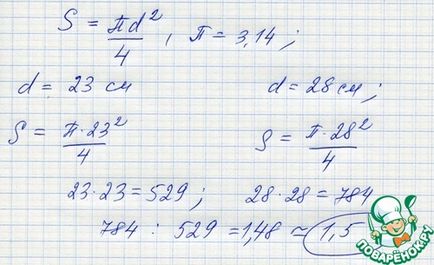 S = πd²/4 , π = 3,14 ;
d = 23 см d = 28 см ;
S = π·23²/4 S = π·28²/4
23·23 = 529 ; 28·28 = 784
784 : 529 = 1,48 ≈ 1,5
ПОВАРЁНОК.РУ